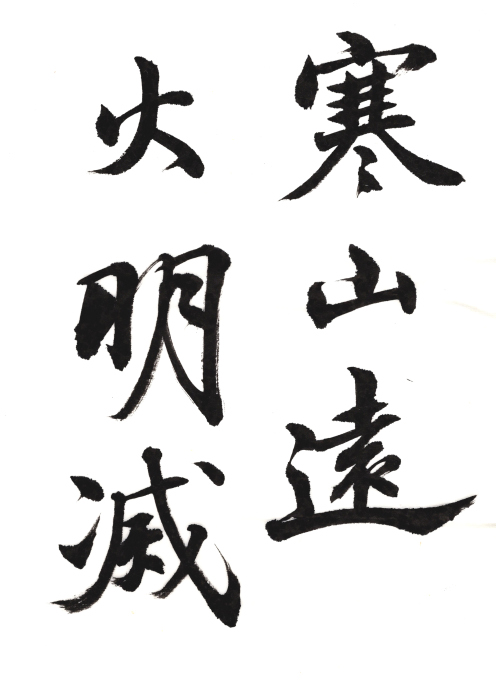 寒山遠
火明滅